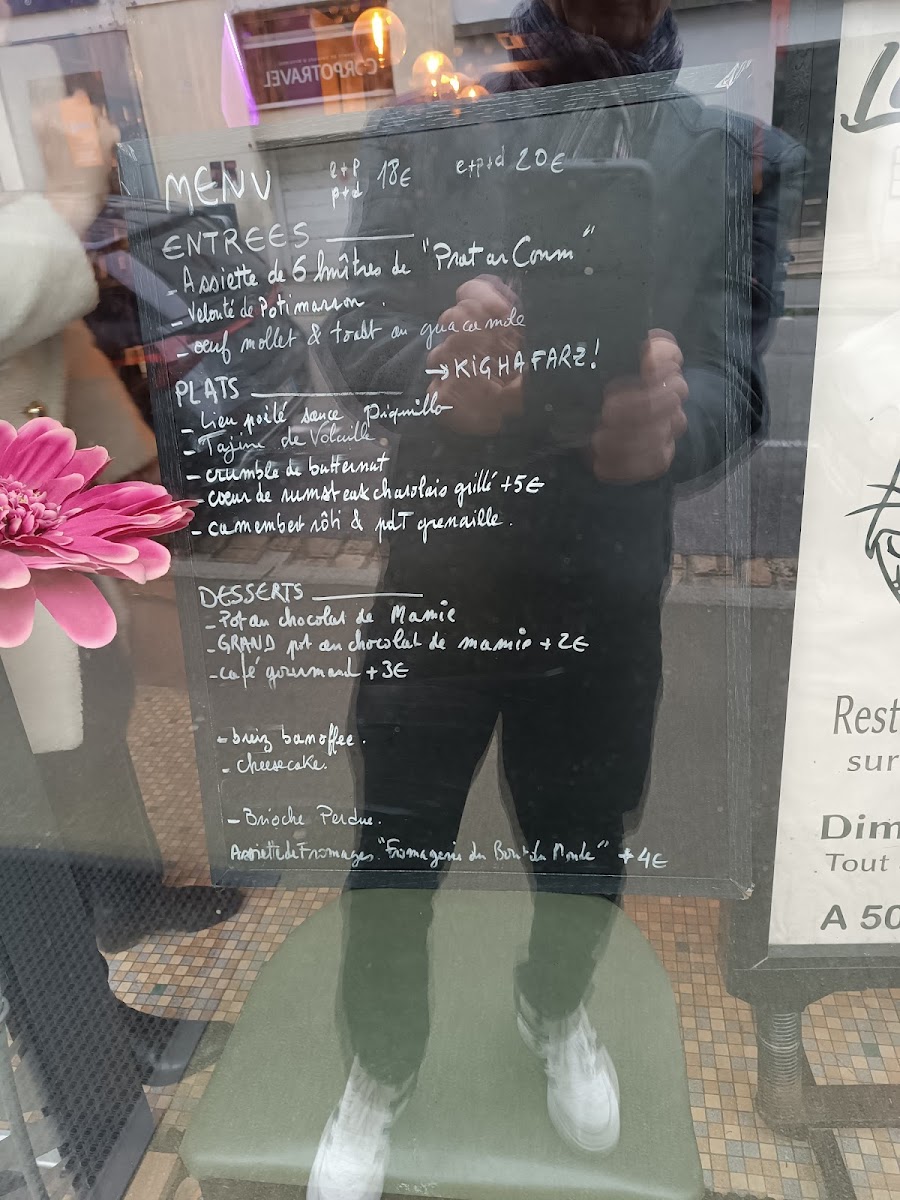 CORPOTRAVEL
MENU
e+p
p+d
18€
e+p+d 20€
ENTREES
- Assiette de 6 huîtres de "Prat ar Coum"
- Velouté de Potimarron.
- oeuf mollet & toast au guacamole
→ KIGHAFARZ!
PLATS
- Lieu poêlé sauce Piquillo
- Tajine de Volaille.
- crumble de butternut
- coeur de rumsteak charolais grillé +5€
- camembert rôti & pdT grenaille.
DESSERTS
- Pot au chocolat de Mamie
- GRAND pot au chocolat de mamie +2€
- café gourmand +3€
- breiz banoffee.
- cheesecake.
- Brioche Perdue.
Assiette de Fromages "Fromagerie du Bout du Monde" +4€
Rest
sur
Dim
Tout
A 50